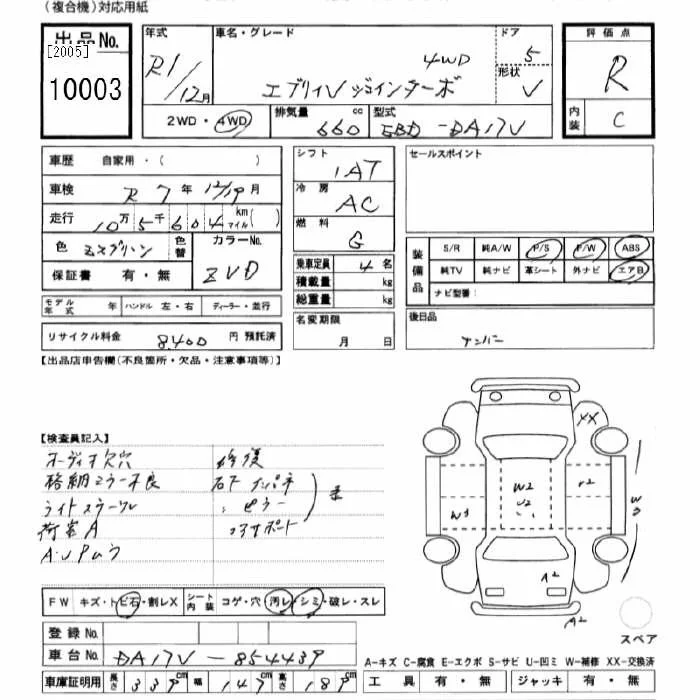 (複合機)対応用紙
出品No.
[2005]
10003
年式
R1/12月
車名・グレード
4WD
エブリイV ジョインターボ
ドア
5
形状
V
2WD・4WD
排気量
660
cc
型式
EBD-DA17V
評価点
R
内装
C
車歴 自家用・( )
車検 R 7 年 12/19 月
走行 10万5千604 km マイル( )
色 ミスグリーン
色替
カラーNo.
ZVD
保証書 有・無
モデル年式 年 ハンドル 左・右 ディーラー・並行
リサイクル料金 8,400 円 預託済
シフト
IAT
冷房
AC
燃料
G
乗車定員 4 名
積載量 kg
総重量 kg
名変期限
月 日
セールスポイント
装備品
S/R 純A/W P/S P/W ABS
純TV 純ナビ 革シート 外ナビ エアB
ナビ型番:
後日品
ナンバー
【出品店申告欄(不良箇所・欠品・注意事項等)】
【検査員記入】
オーディオ欠穴
格納ミラー不良
ライトスラール
荷室A
A・U Pムラ
修復
右F インパネ
ピラー
コアサポート
XX
W2
U2
W3
W3
A2
A2
スペア
FW キズ・トビ石・割レX シート内装 コゲ・穴 汚レ・シミ・破レ・スレ
登録No.
車台No. DA17V-854439
車庫証明用 長さ 339 cm 幅 147 cm 高さ 189 cm
A-キズ C-腐食 E-エクボ S-サビ U-凹ミ W-補修 XX-交換済
工具 有・無 ジャッキ 有・無